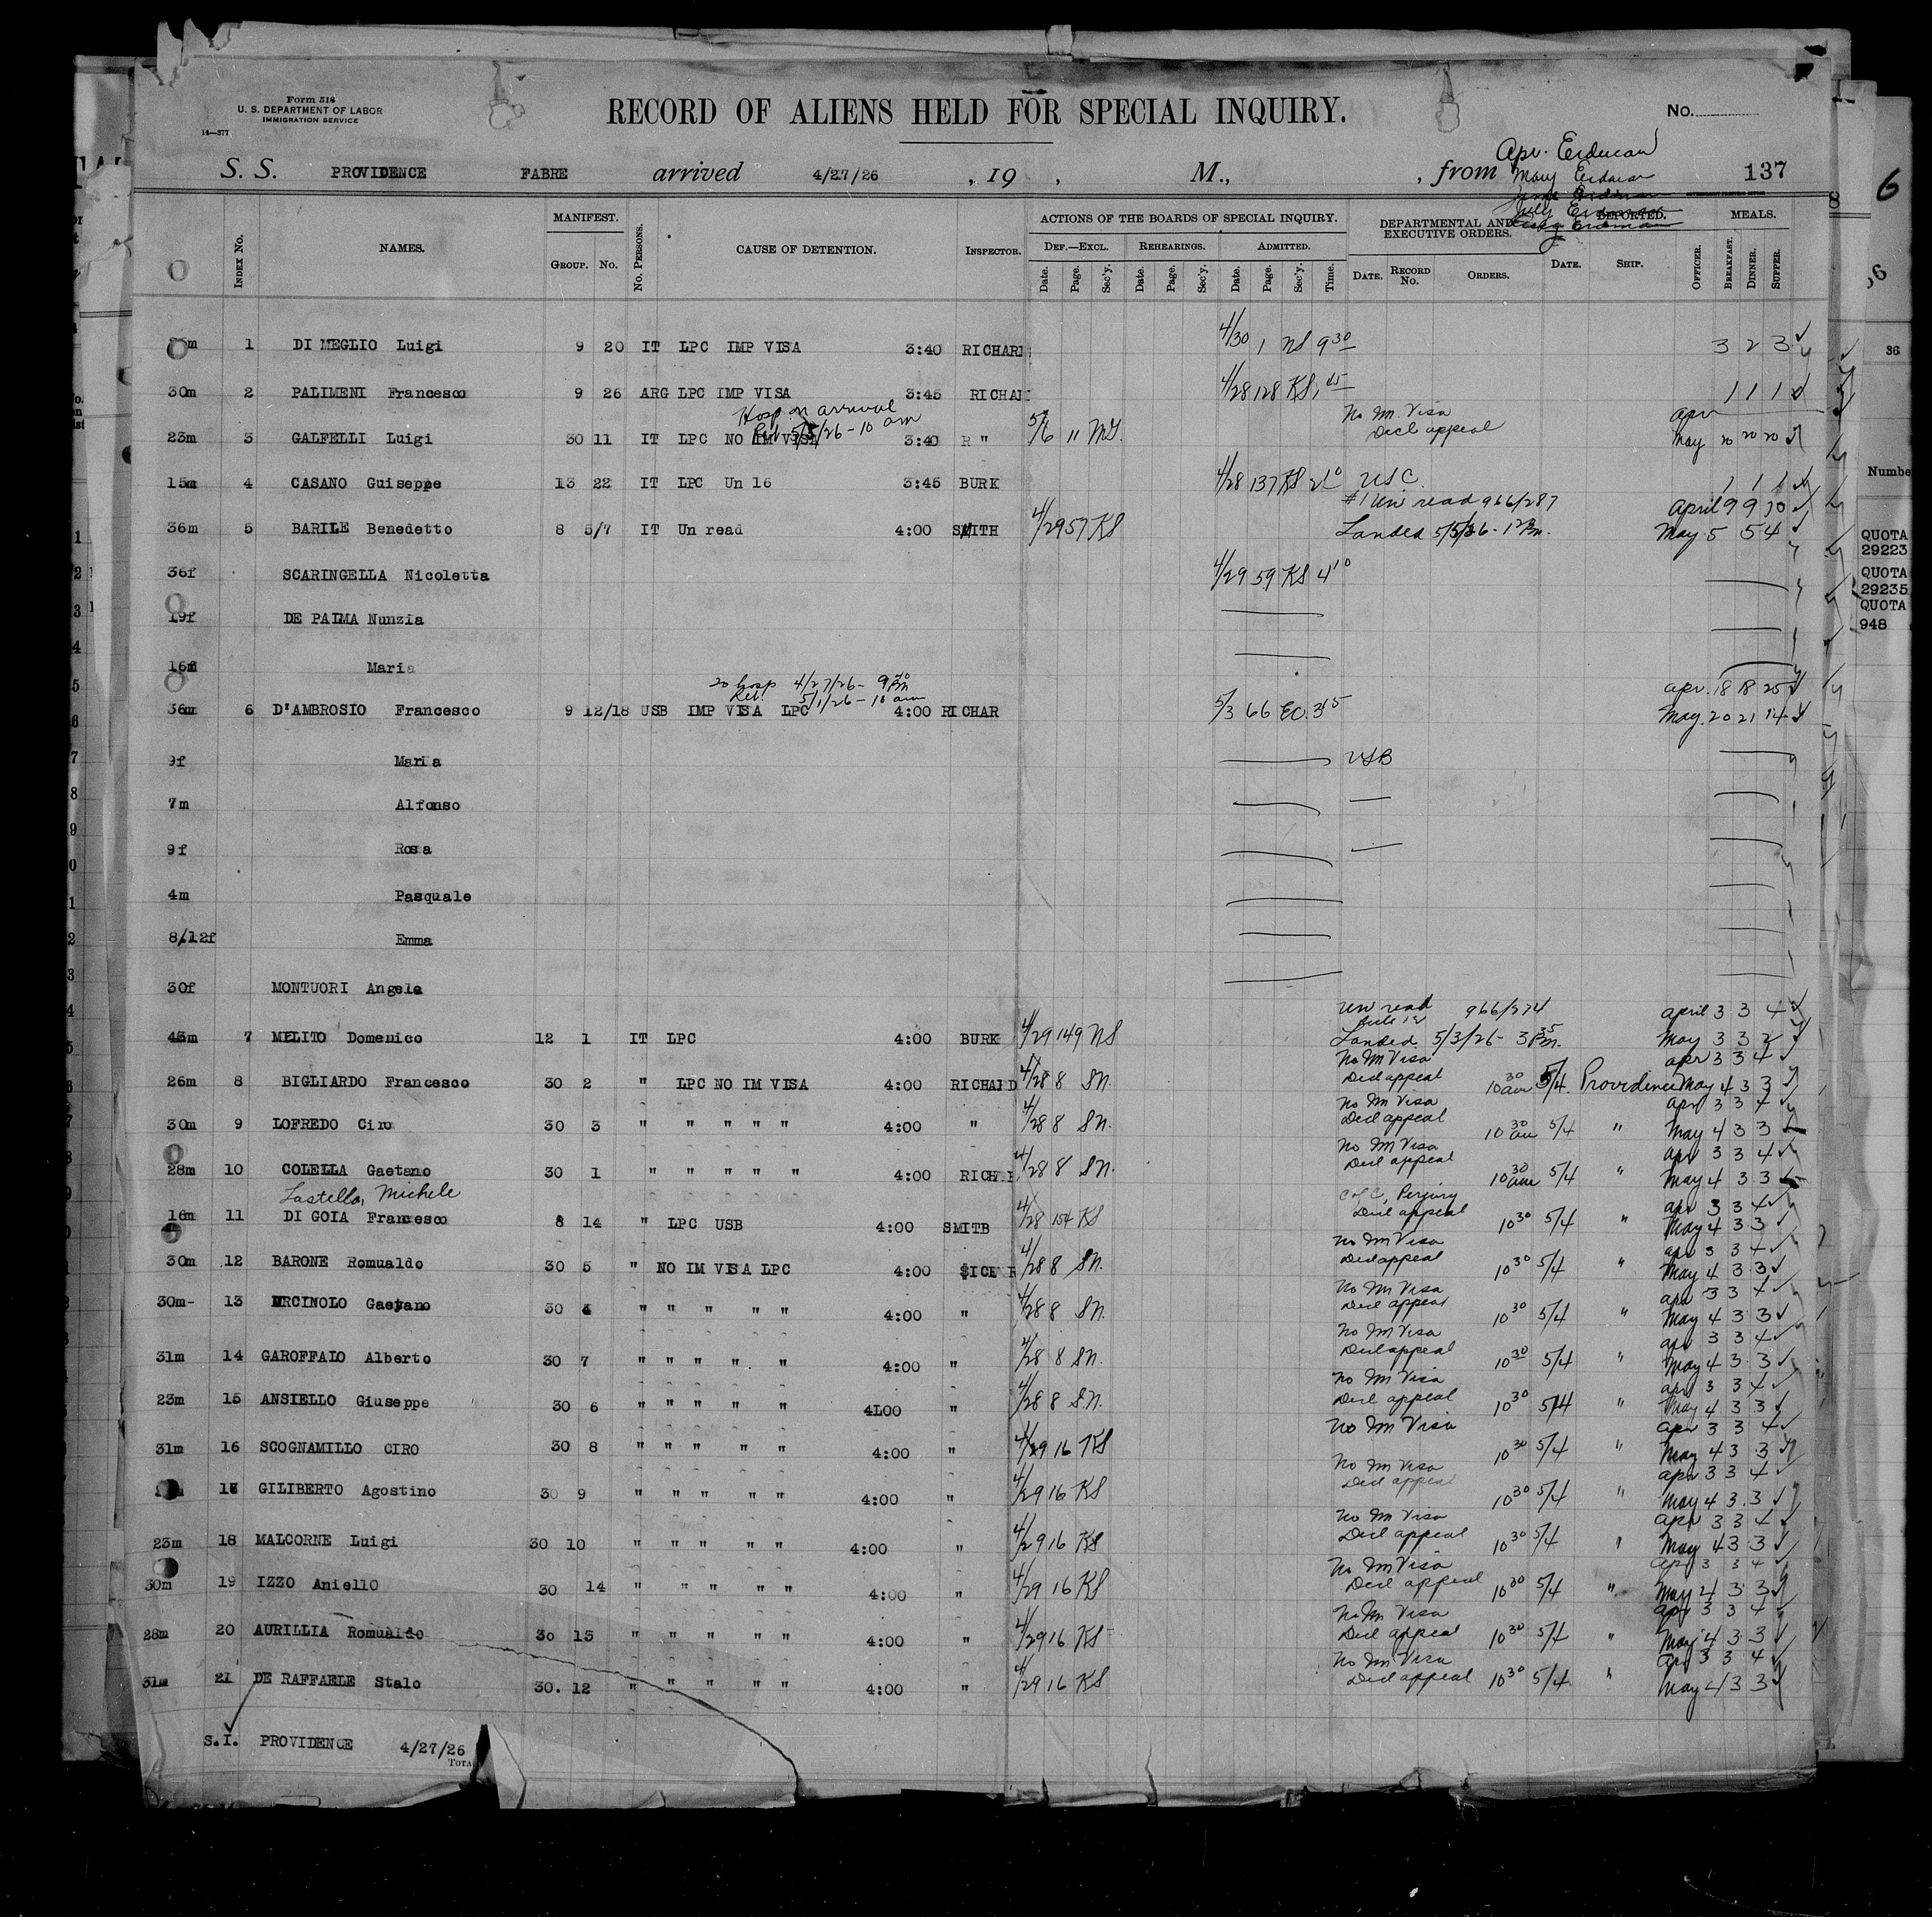 Form 518
U. S. DEPARTMENT OF LABOR
IMMIGRATION SERVICE
14—377
RECORD OF ALIENS HELD FOR SPECIAL INQUIRY.
No.
Apr. Erdman
S. S. PROVIDENCE FABRE arrived 4/27/26 , 19 , M., , from May Erdman 137
June Erdman
July Erdman
INDEX No. NAMES. MANIFEST. GROUP. No. No. PERSONS. CAUSE OF DETENTION. INSPECTOR. ACTIONS OF THE BOARDS OF SPECIAL INQUIRY. DEPARTMENTAL AND EXECUTIVE ORDERS. DEPORTED. MEALS.
DEF.—EXCL. REHEARINGS. ADMITTED.
Date. Page. Sec'y. Date. Page. Sec'y. Date. Page. Sec'y. Time. DATE. RECORD No. ORDERS. DATE. SHIP. OFFICER. BREAKFAST. DINNER. SUPPER.
1 DI MEGLIO Luigi 9 20 IT LPC IMP VISA 3:40 RICHARD 4/30 1 NS 9 30 3 2 3
30m 2 PALIMENI Francesco 9 26 ARG LPC IMP VISA 3:45 RICHAR 4/28 128 KS 1 45 1 1 1
Hosp on arrival No Im Visa Apr
Rel. 5/5/26 - 10 am
23m 3 GALFELLI Luigi 30 11 IT LPC NO IM VISA 3:40 R " 5/6 11 MG. Decl appeal May 20 20 20
15m 4 CASANO Guiseppe 13 22 IT LPC Un 16 3:45 BURK 4/28 137 KS 2 10 USC. 1 1 1
#1 Un read 966/287 April 9 9 10
36m 5 BARILE Benedetto 8 5/7 IT Un read 4:00 SMITH 4/29 57 KS Landed 5/5/26 - 1 Pm. May 5 5 4
36f SCARINGELLA Nicoletta 4/29 59 KS 4 10
19f DE PALMA Nunzia
16f Maria
to hosp 4/27/26 - 9 Pm Apr. 18 18 25
Rel. 5/1/26 - 10 am
36m 6 D'AMBROSIO Francesco 9 12/18 USB IMP VISA LPC 4:00 RICHAR 5/3 66 EO. 3 45 May. 20 21 14
9f Maria USB
7m Alfonso
9f Rosa
4m Pasquale
8/12f Emma
30f MONTUORI Angela
Un read 966/274 April 3 3 4
43m 7 MELITO Domenico 12 1 IT LPC 4:00 BURK 4/29 149 NS Landed 5/3/26 - 3 35 Pm. May 3 3 2
No Im Visa Apr 3 3 4
26m 8 BIGLIARDO Francesco 30 2 " LPC NO IM VISA 4:00 RICHARD 4/28 8 SN. Decl appeal 10 30 am 5/4. Providence May 4 3 3
No Im Visa Apr 3 3 4
30m 9 LOFREDO Ciro 30 3 " " " " " 4:00 " 4/28 8 SN. Decl appeal 10 30 am 5/4 " May 4 3 3
No Im Visa Apr 3 3 4
28m 10 COLELLA Gaetano 30 1 " " " " " 4:00 RICH R 4/28 8 SN. Decl appeal 10 30 am 5/4 " May 4 3 3
Lastella, Michele Perjury Apr 3 3 4
16m 11 DI GOIA Francesco 8 14 " LPC USB 4:00 SMITB 4/28 154 KS Decl appeal 10 30 5/4 " May 4 3 3
No Im Visa Apr 3 3 4
30m 12 BARONE Romualdo 30 5 " NO IM VISA LPC 4:00 4/28 8 SN. Decl appeal 10 30 5/4 " May 4 3 3
No Im Visa Apr 3 3 4
30m- 13 URCINOLO Gaetano 30 4 " " " " " 4:00 " 4/28 8 SN. Decl appeal 10 30 5/4 " May 4 3 3
No Im Visa Apr 3 3 4
31m 14 GAROFFALO Alberto 30 7 " " " " " 4:00 " 4/28 8 SN. Decl appeal 10 30 5/4 " May 4 3 3
No Im Visa Apr 3 3 4
23m 15 ANSIELLO Giuseppe 30 6 " " " " " 4L00 " 4/28 8 SN. Decl appeal 10 30 5/4 " May 4 3 3
No Im Visa Apr 3 3 4
31m 16 SCOGNAMILLO CIRO 30 8 " " " " " 4:00 " 4/29 16 KS 10 30 5/4 " May 4 3 3
No Im Visa Apr 3 3 4
17 GILIBERTO Agostino 30 9 " " " " " 4:00 " 4/29 16 KS Decl appeal 10 30 5/4 " May 4 3 3
No Im Visa Apr 3 3 4
23m 18 MALCORNE Luigi 30 10 " " " " " 4:00 " 4/29 16 KS Decl appeal 10 30 5/4 " May 4 3 3
No Im Visa Apr 3 3 4
30m 19 IZZO Aniello 30 14 " " " " " 4:00 " 4/29 16 KS Decl appeal 10 30 5/4 " May 4 3 3
No Im Visa Apr 3 3 4
28m 20 AURILLIA Romualdo 30 13 " " " " " 4:00 " 4/29 16 KS Decl appeal 10 30 5/4 " May 4 3 3
No Im Visa Apr 3 3 4
31m 21 DE RAFFAELE Stalo 30. 12 " " " " " 4:00 " 4/29 16 KS Decl appeal 10 30 5/4 " May 4 3 3
S.I. PROVIDENCE 4/27/26
TOTA
6
36
Numbe
QUOTA
29223
QUOTA
29235
QUOTA
948